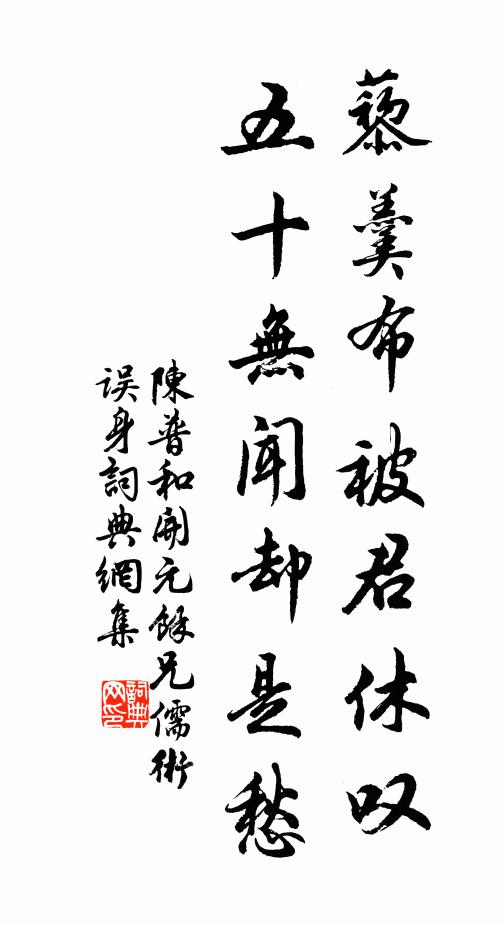 藜羹布被君休叹
五十無聞却是愁
陳普和開元餘兄儒術
误身詞典網集
詞典
网印